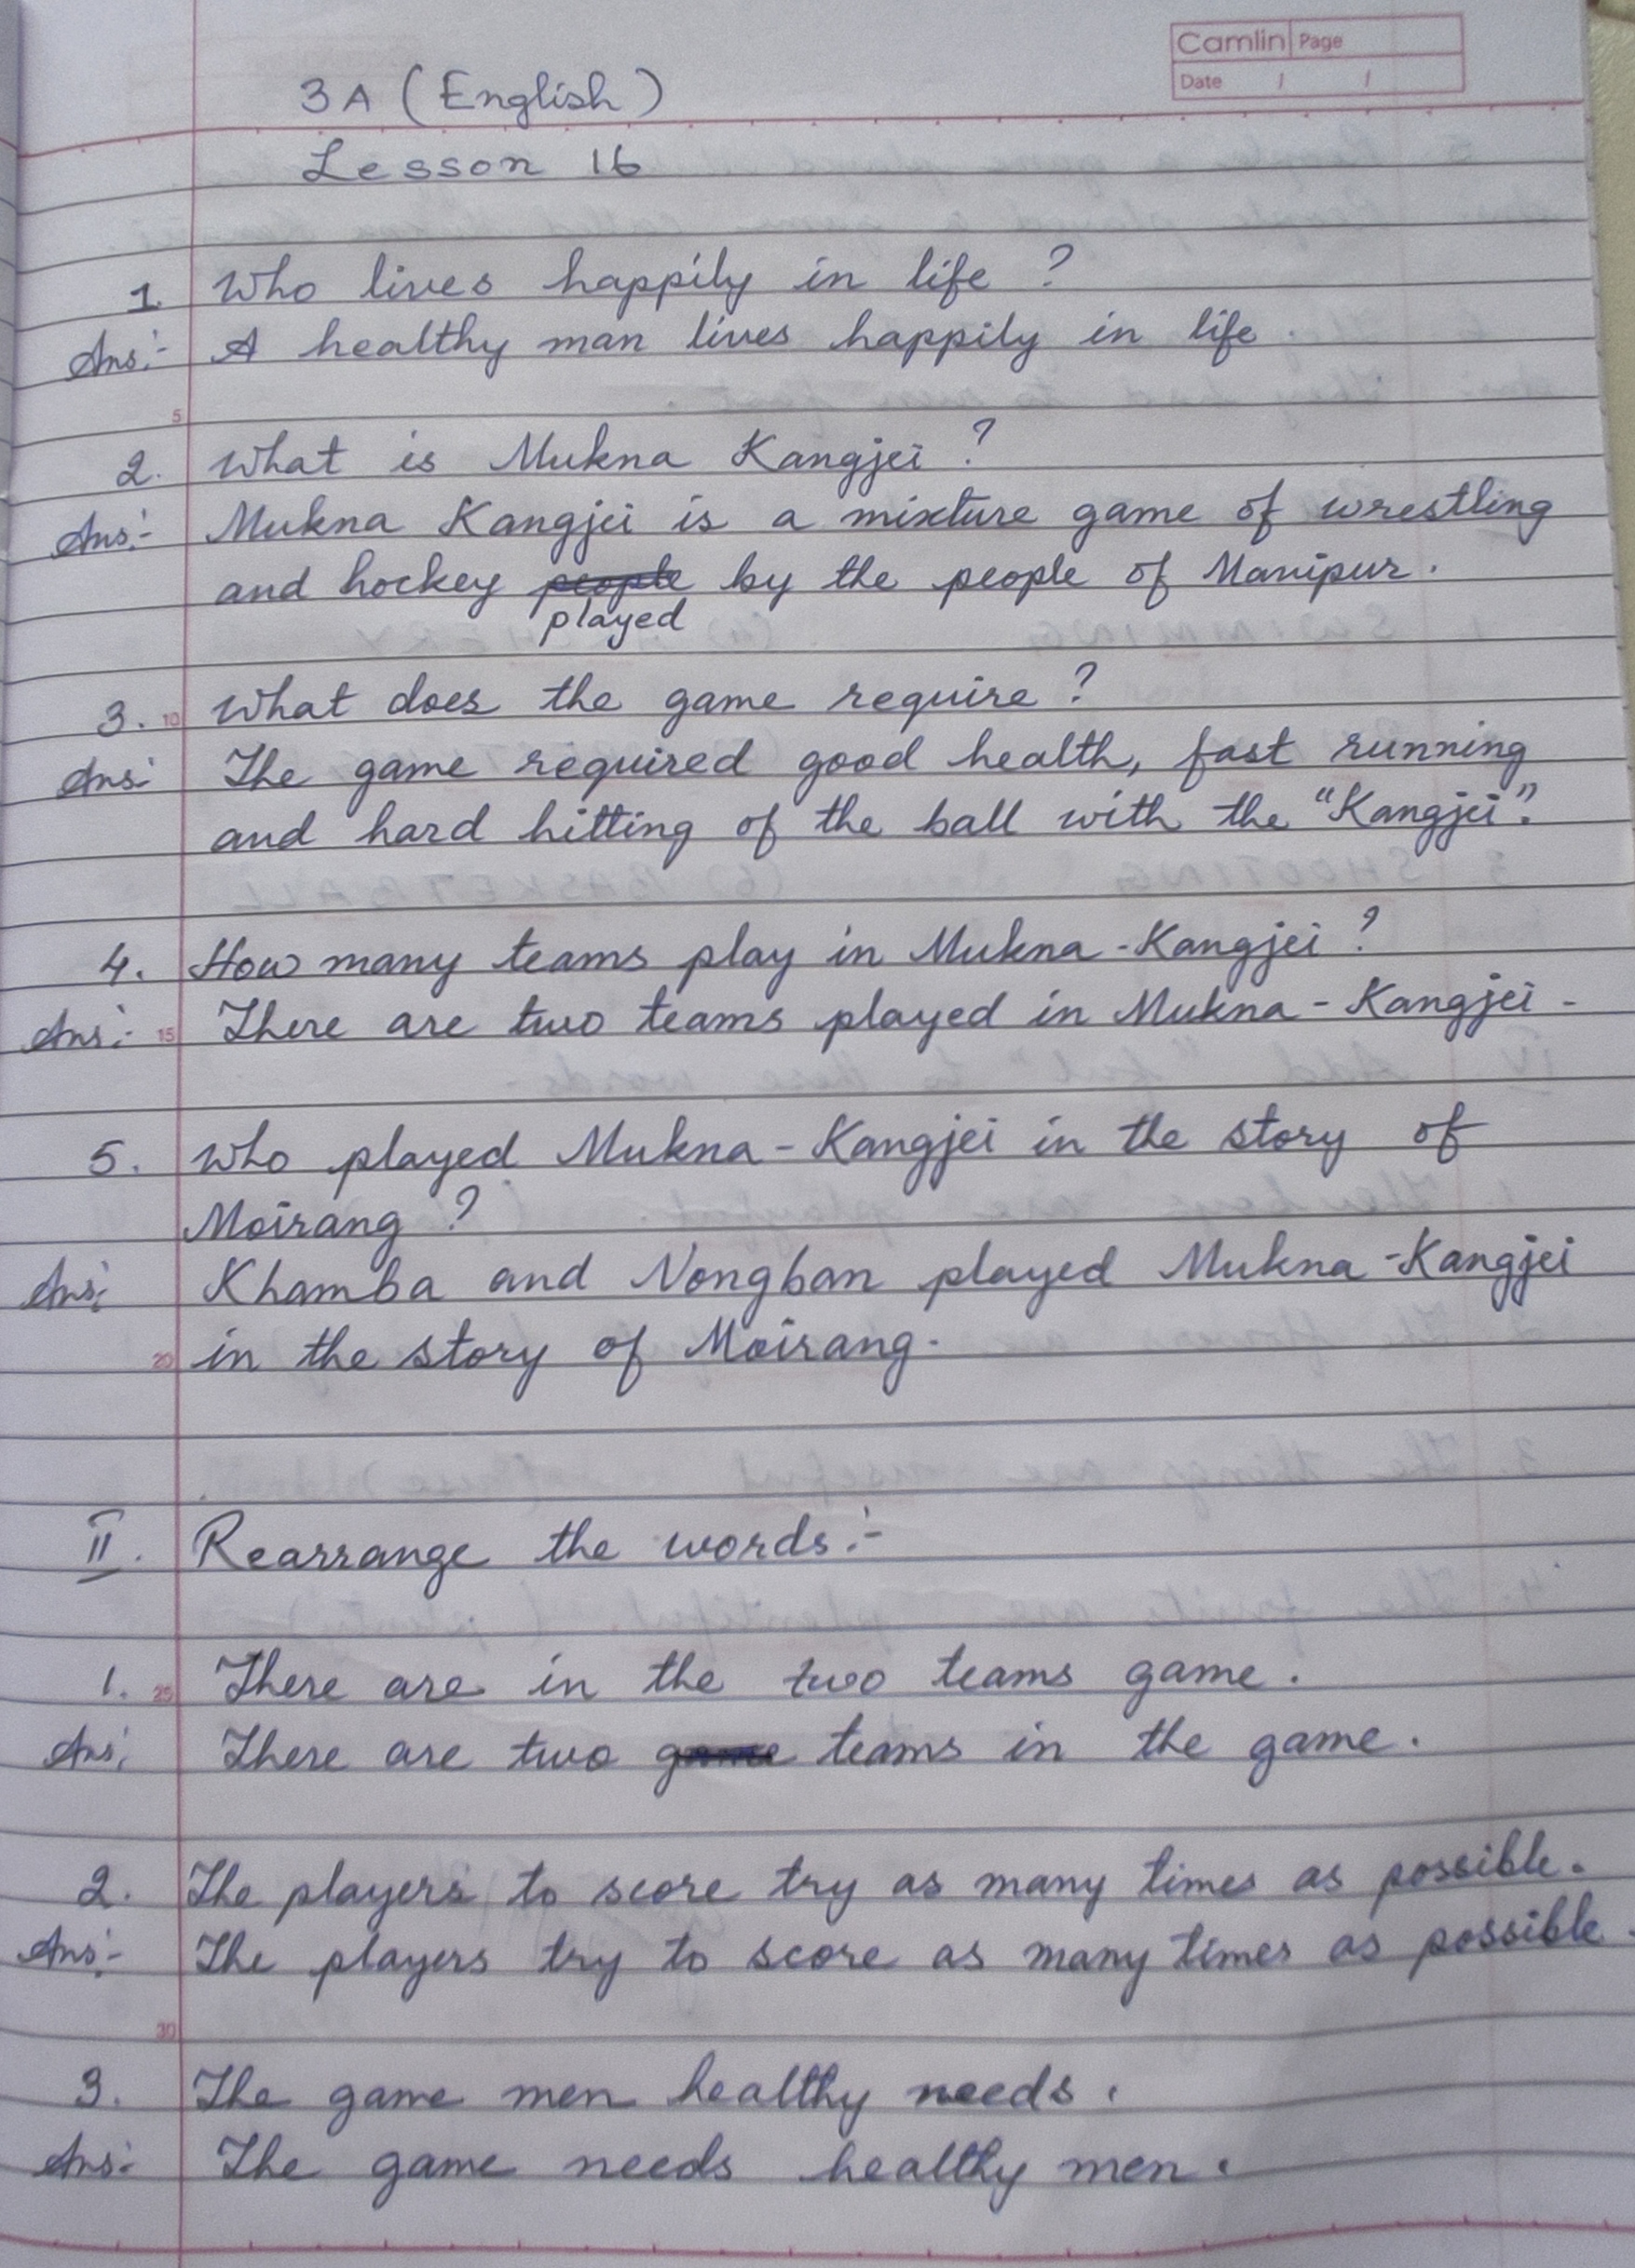 Camlin Page
Date / /
3A (English)
Lesson 16
1. Who lives happily in life ?
Ans:- A healthy man lives happily in life.
5
2. What is Mukna Kangjei ?
Ans:- Mukna Kangjei is a mixture game of wrestling
and hockey people by the people of Manipur.
played
3. 10 What does the game require ?
Ans:- The game required good health, fast running
and hard hitting of the ball with the "Kangjei".
4. How many teams play in Mukna-Kangjei ?
Ans:- 15 There are two teams played in Mukna-Kangjei.
5. Who played Mukna-Kangjei in the story of
Moirang ?
Ans: Khamba and Nongban played Mukna-Kangjei
20 in the story of Moirang.
II. Rearrange the words:-
1. 25 There are in the two teams game.
Ans: There are two game teams in the game.
2. The players to score try as many times as possible.
Ans:- The players try to score as many times as possible.
30
3. The game men healthy needs.
Ans:- The game needs healthy men.